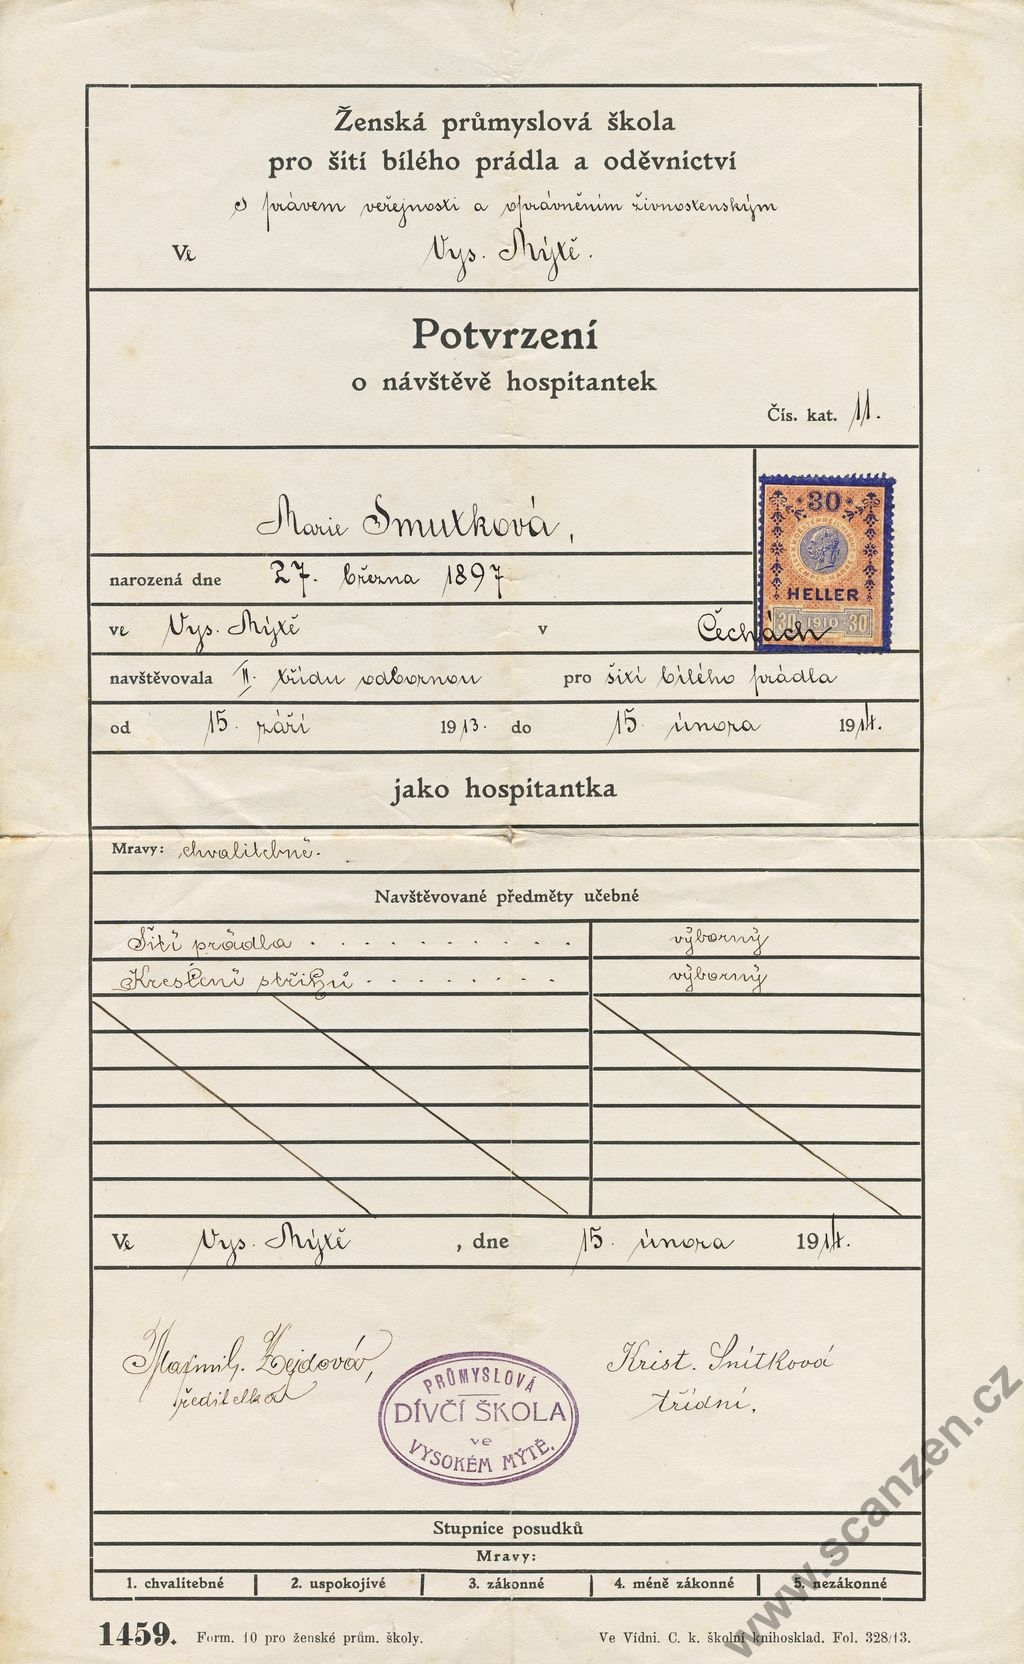 Ženská průmyslová škola
pro šití bílého prádla a oděvnictví
s právem veřejnosti a oprávněním živnostenským
Ve Vys. Mýtě.
Potvrzení
o návštěvě hospitantek
Čís. kat. 11.
30
HELLER
30 1910 30
Marie Smutková,
narozená dne 27. března 1897
ve Vys. Mýtě v Čechách
navštěvovala II. třídu odbornou pro šití bílého prádla
od 15. září 1913. do 15. února 1914.
jako hospitantka
Mravy: chvalitebné.
Navštěvované předměty učebné
Šití prádla . . . . . . . . . . výborný
Kreslení střihů . . . . . . . výborný
Ve Vys. Mýtě , dne 15. února 1914.
Maxmil. Zejdová,
ředitelka
Krist. Snítková
třídní.
PRŮMYSLOVÁ
DÍVČÍ ŠKOLA
ve
VYSOKÉM MÝTĚ.
Stupnice posudků
Mravy:
1. chvalitebné 2. uspokojivé 3. zákonné 4. méně zákonné 5. nezákonné
1459. Form. 10 pro ženské prům. školy. Ve Vídni. C. k. školní knihosklad. Fol. 328/13.
www.scanzen.cz